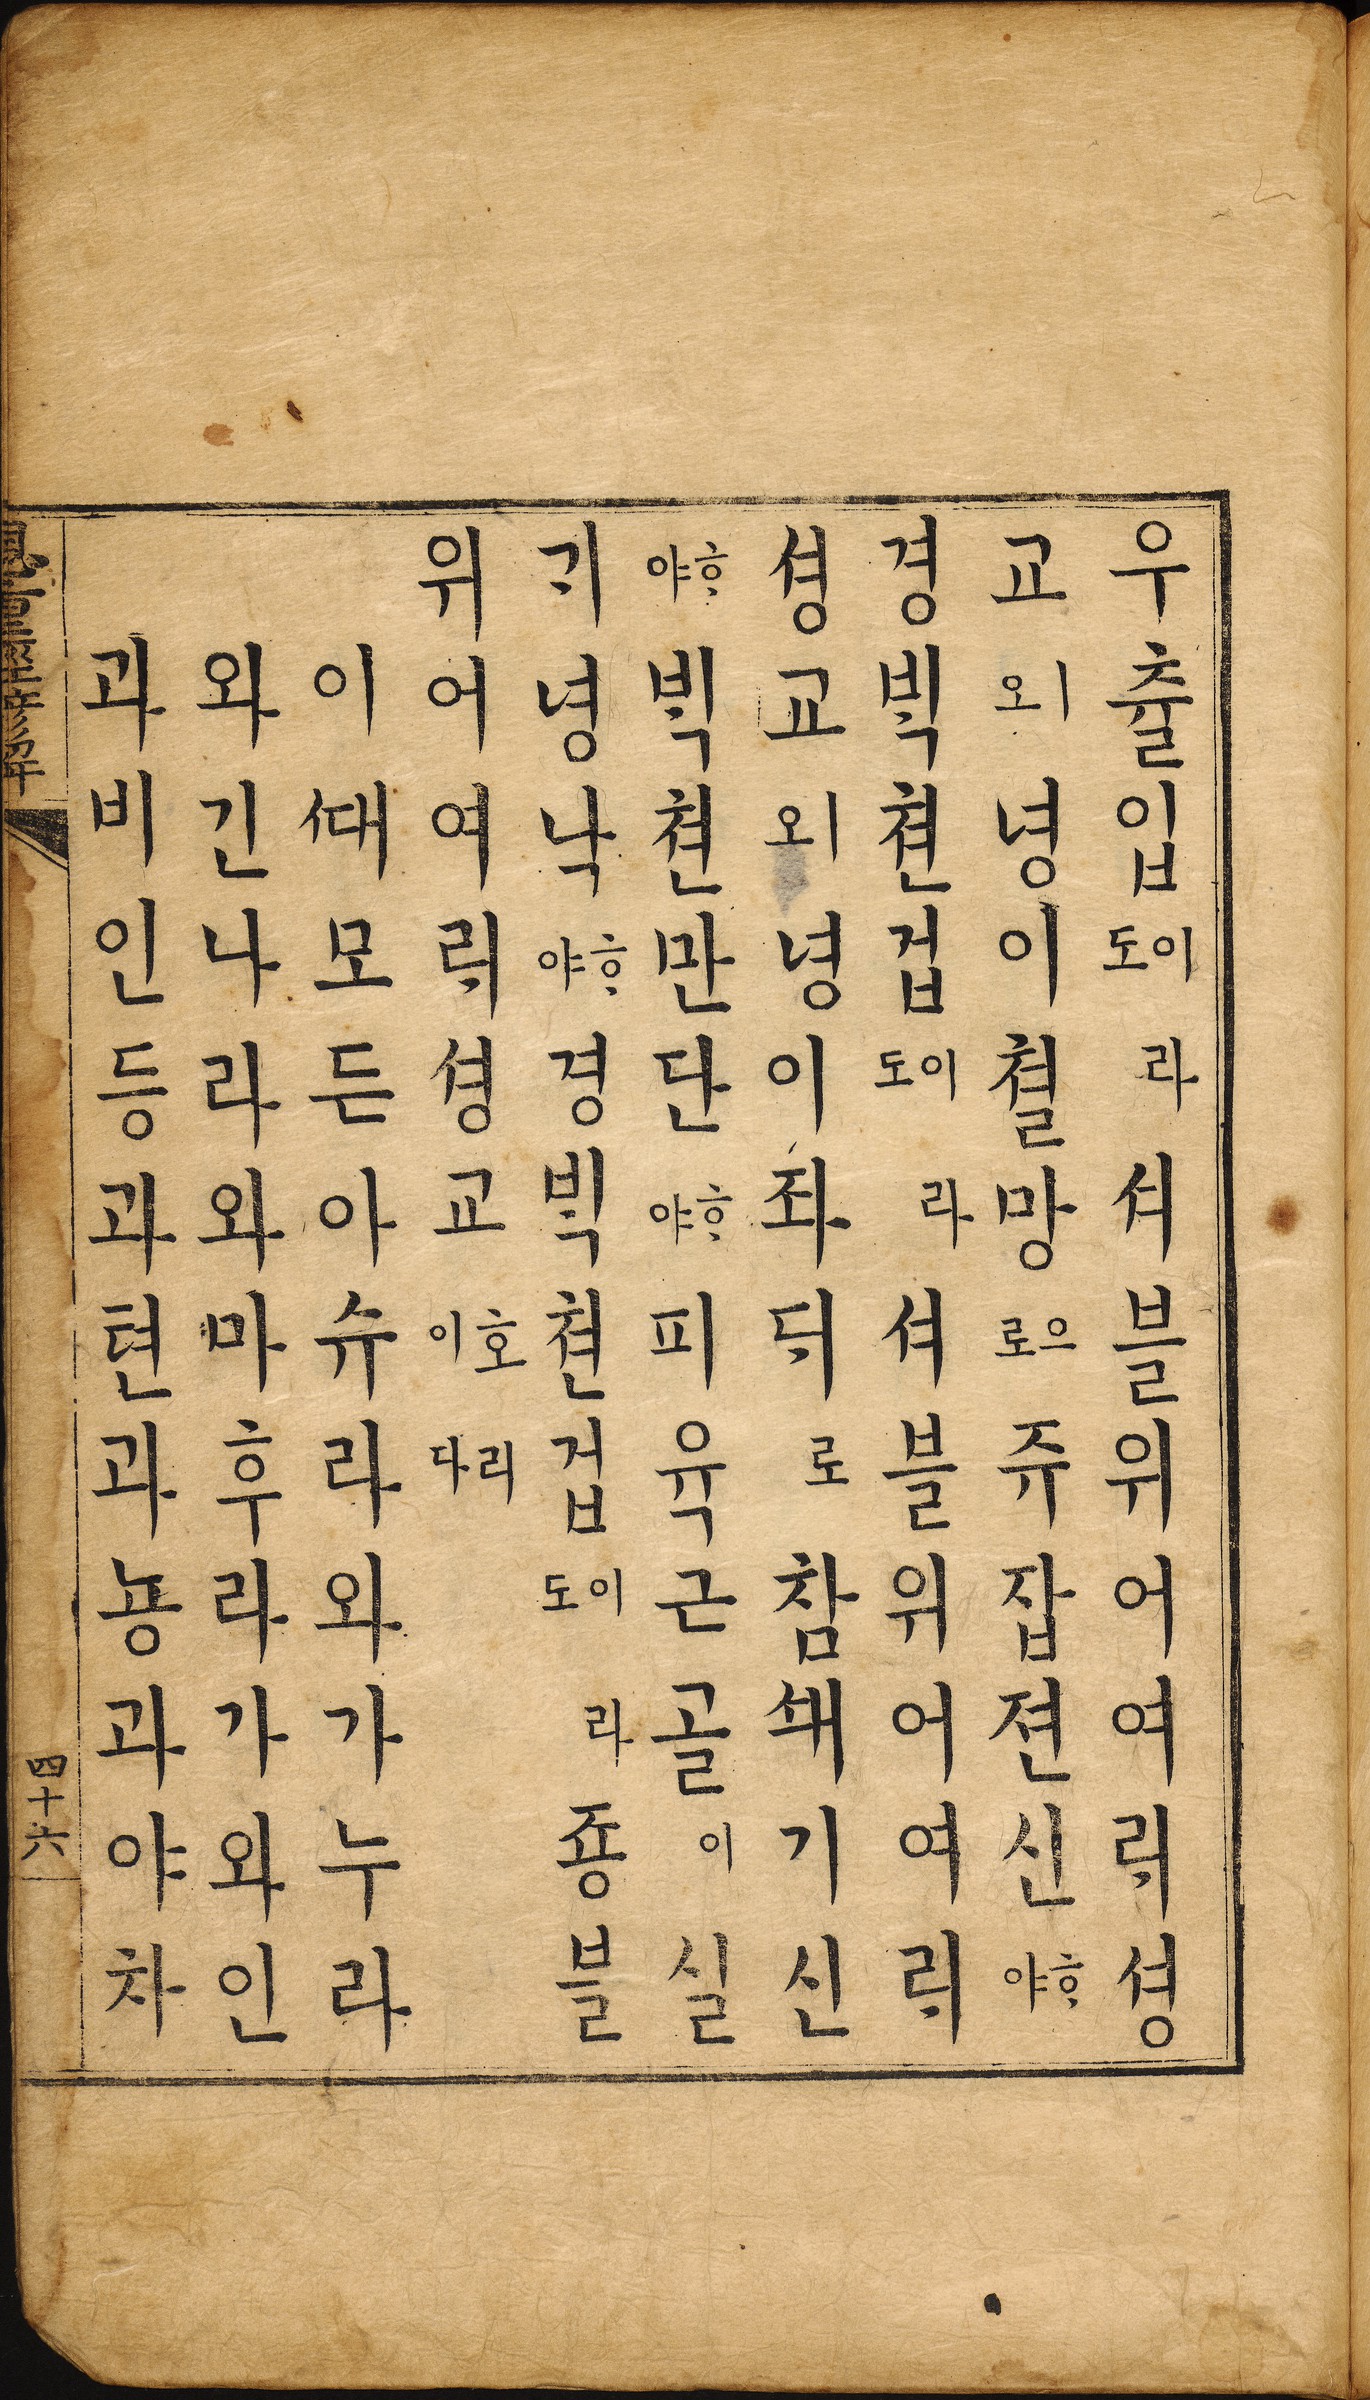 우츌입이도라셔블위어여ᄅᆡ셩
교외녕이쳘망으로쥬잡젼신ᄒᆞ야
경ᄇᆡᆨ쳔겁이도라셔블위어여ᄅᆡ
셩교외녕이좌ᄃᆡ로참쇄기신
ᄒᆞ야ᄇᆡᆨ쳔만단ᄒᆞ야피육근골이실
ᄀᆡ녕낙ᄒᆞ야경ᄇᆡᆨ쳔겁이도라죵블
위어여ᄅᆡ셩교호이리다
이ᄯᅢ모든아슈라와가누라
와긴나라와마후라가와인
과비인등과텬과뇽과야차
四十六